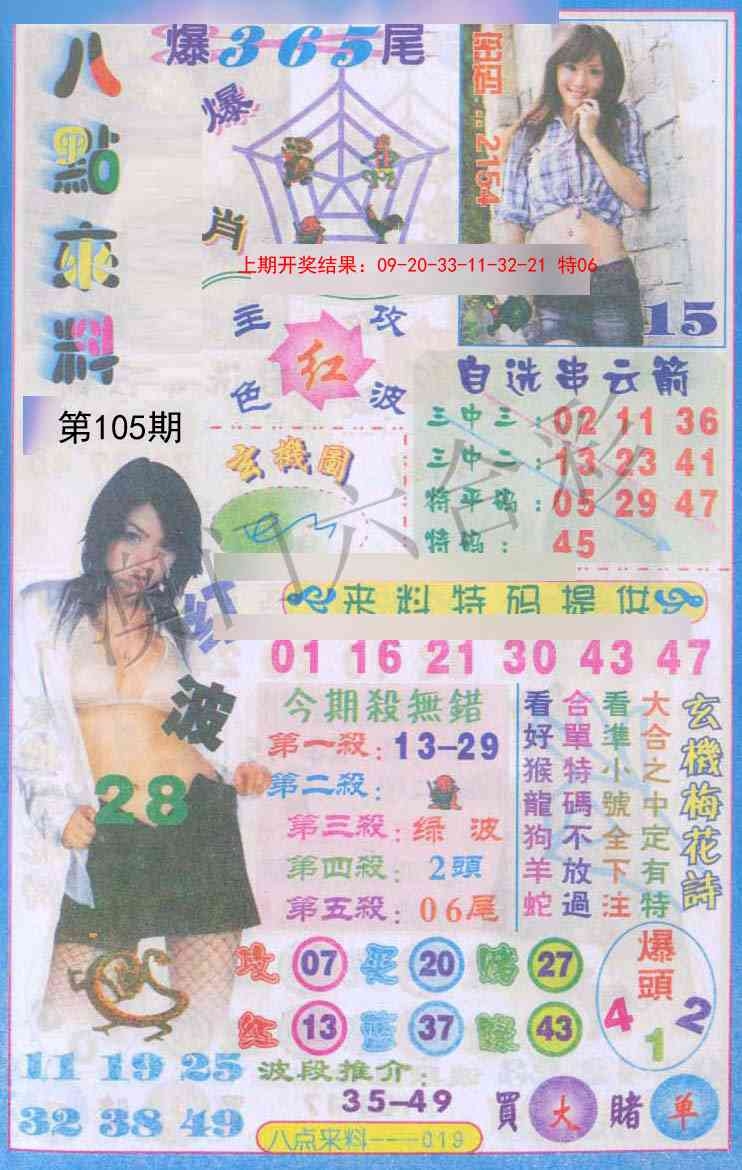 八點來料
爆365尾
爆肖
密码:2154
上期开奖结果：09-20-33-11-32-21 特06
15
主攻
红
色波
第105期
自选串云箭
三中三：02 11 36
三中二：13 23 41
特平码：05 29 47
特码：45
玄機圖
红波
28
来料特码提供
01 16 21 30 43 47
今期殺無錯
第一殺：13-29
第二殺：
第三殺：绿波
第四殺：2頭
第五殺：06尾
玄機梅花詩
大合之中定有特
看準小號全下注
合單特碼不放過
看好猴龍狗羊蛇
攻 07 买 20 赌 27
红 13 蓝 37 绿 43
爆頭
4 1 2
11 19 25
32 38 49
波段推介：
35-49
買大賭单
八点来料----019